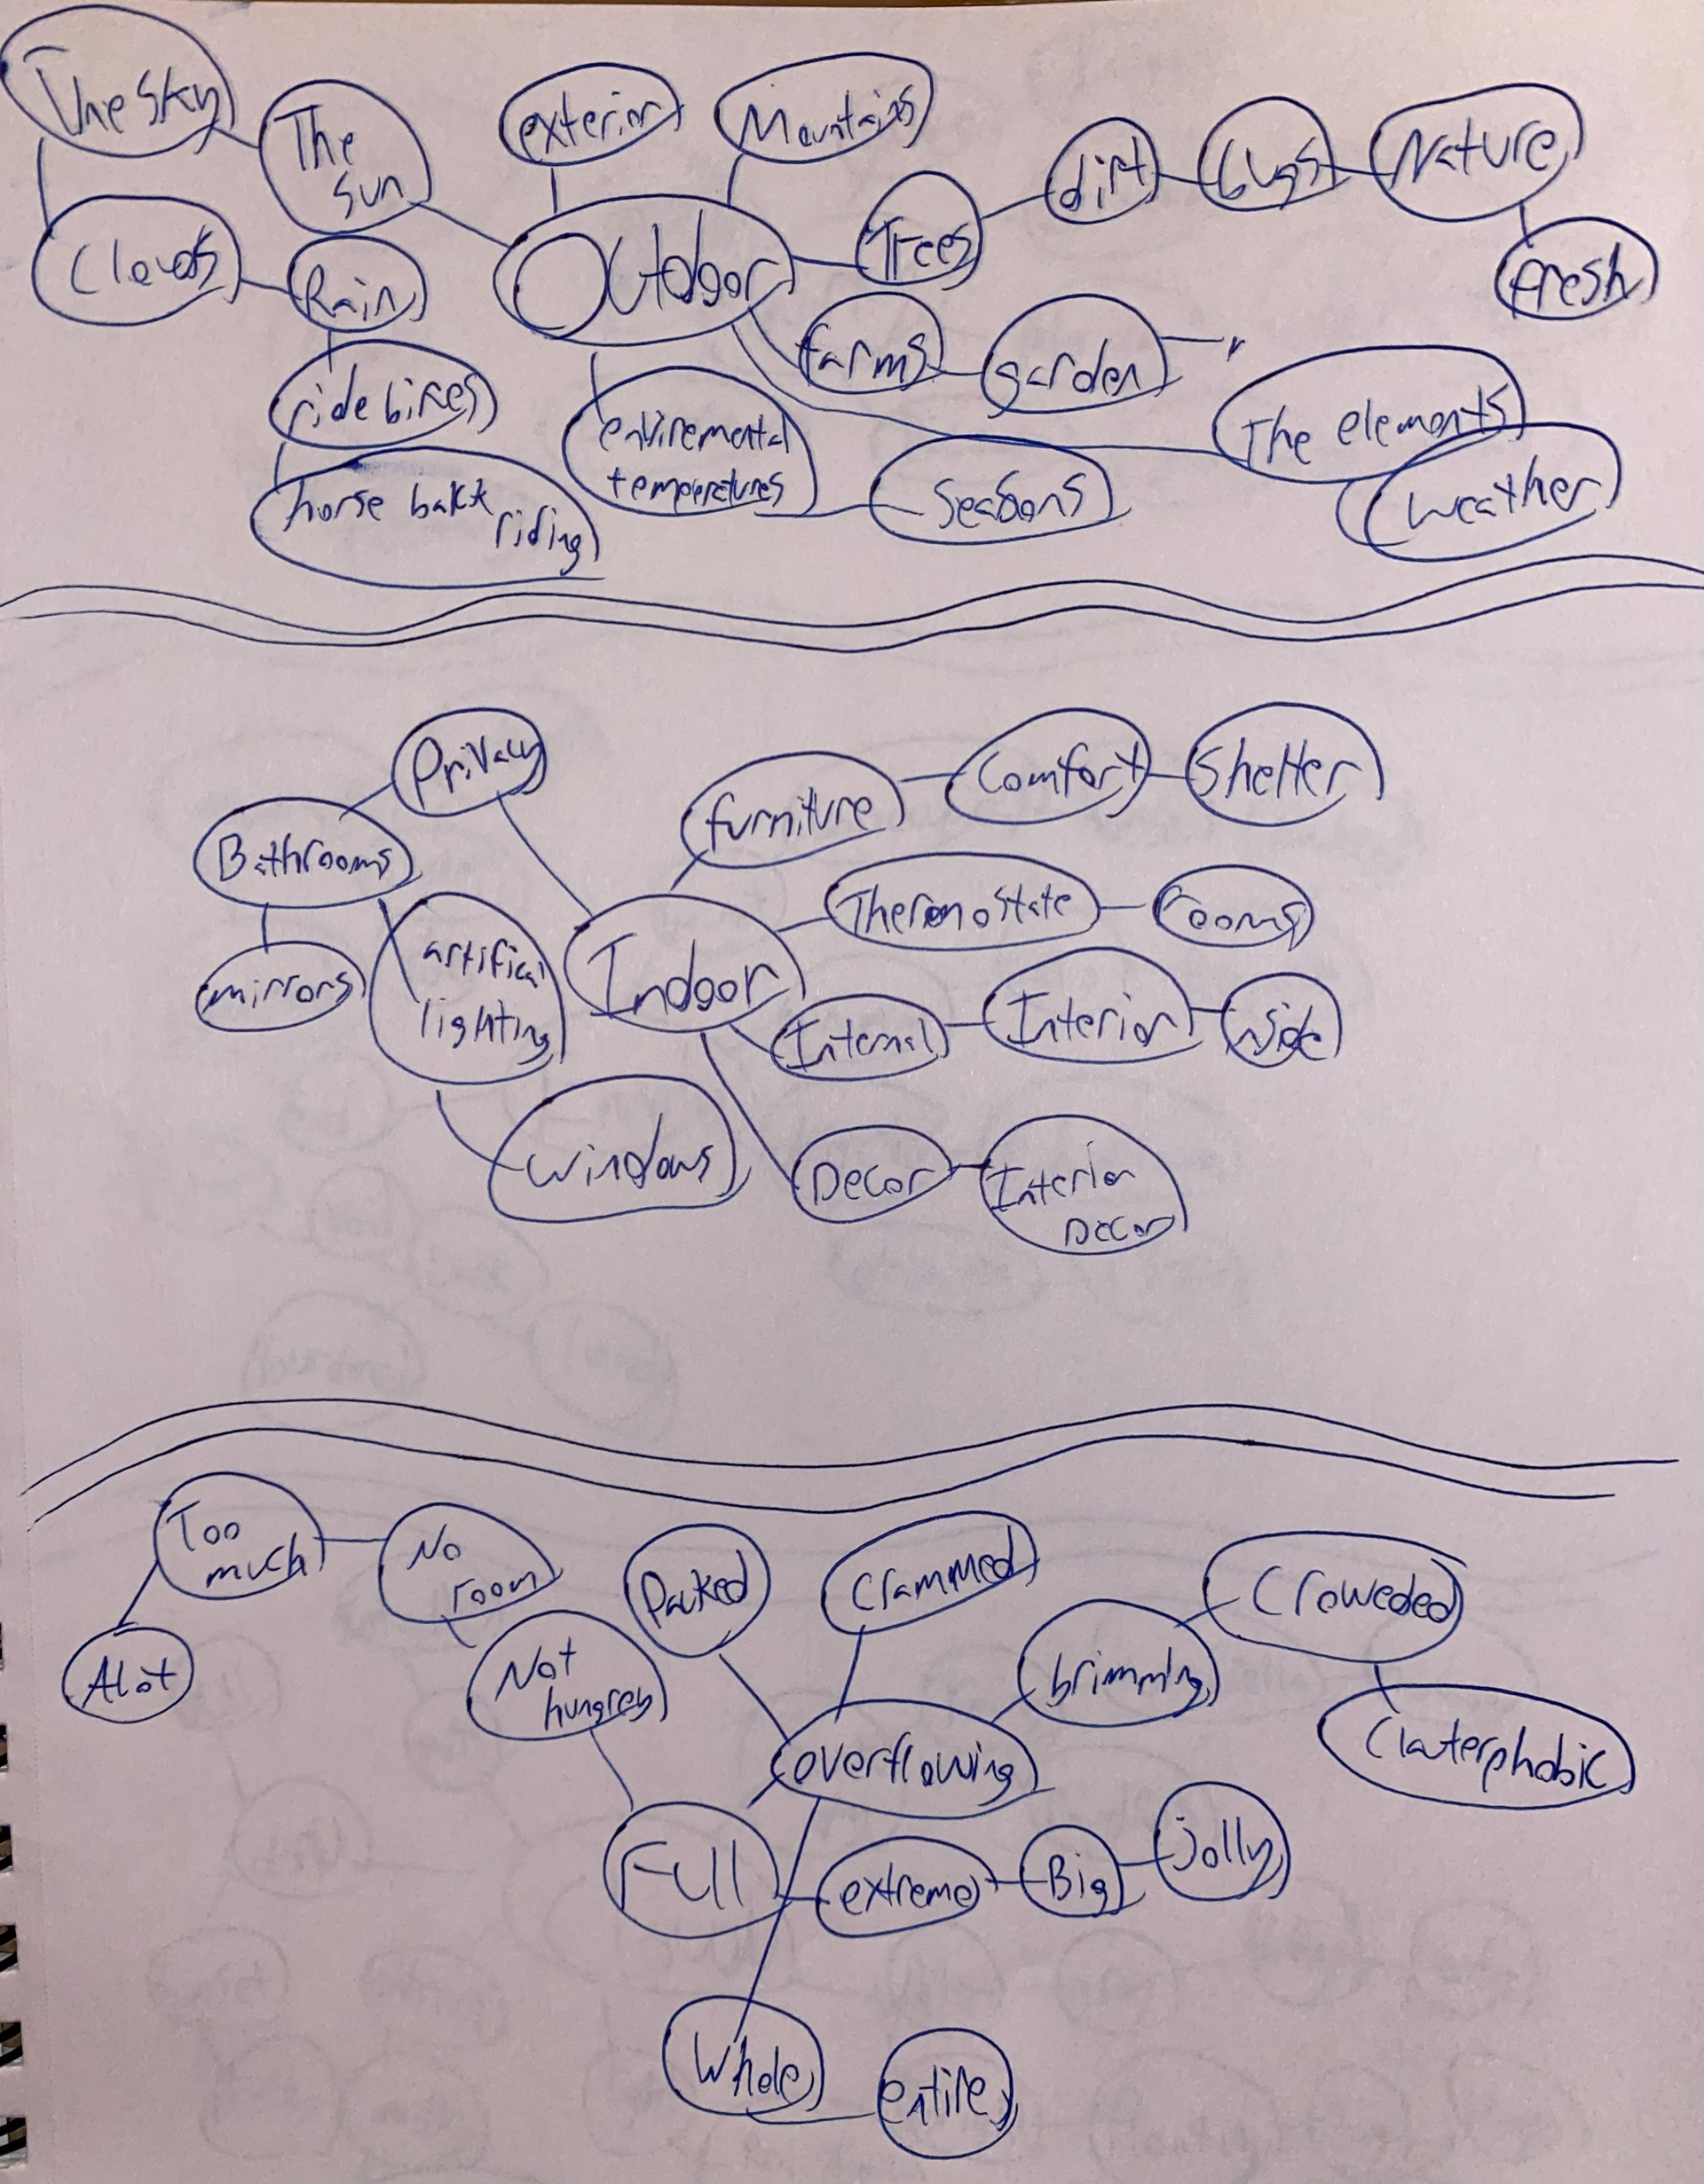 The Sky
The
sun
exterior
Mountains
dirt
bugs
Nature
fresh
Clouds
Rain
Outdoor
Trees
farms
garden
ride bikes
horse back
riding
enviremental
temperatures
Seasons
The elements
Weather
Privacy
furniture
Comfort
Shelter
Bathrooms
Thermostate
rooms
mirrors
artifical
lighting
Indoor
Internal
Interior
inside
windows
Decor
Interior
Decor
Too
much
No
room
Packed
Crammed
Croweded
Alot
Not
hungrey
brimming
overflowing
Clauterphobic
Full
extreme
Big
jolly
Whole
entire